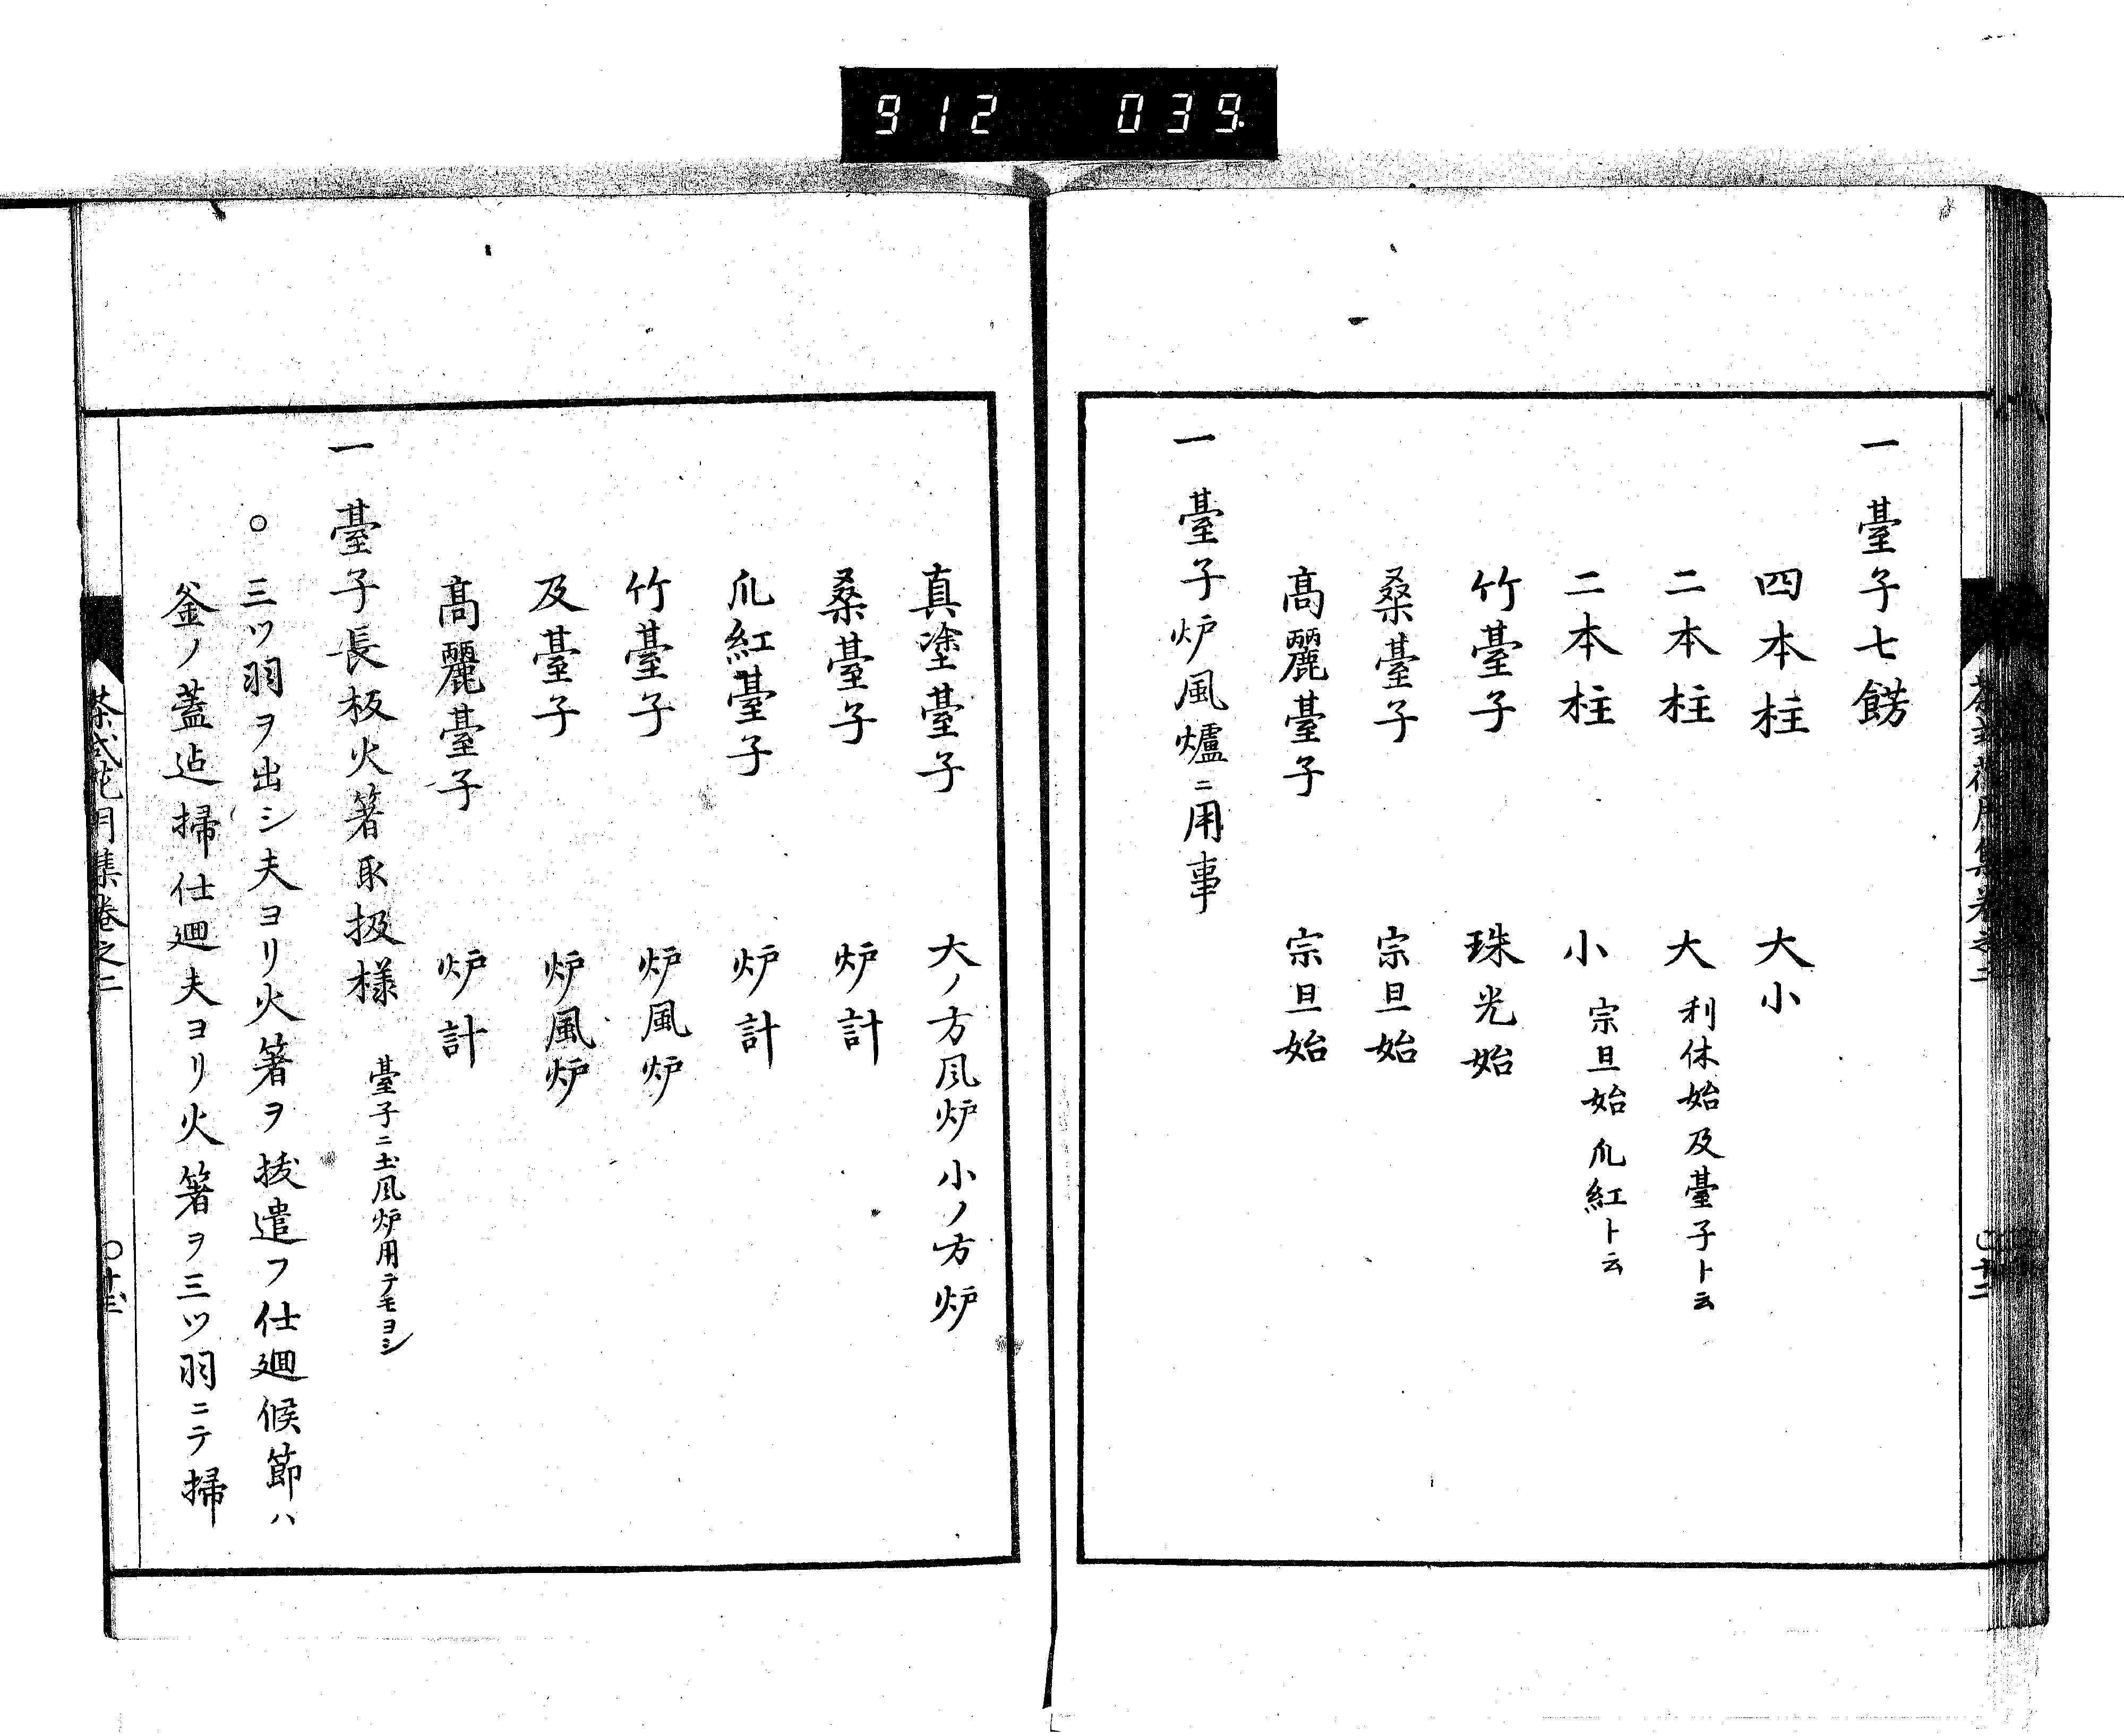 912 039
一 臺子七餝
四本柱 大小
二本柱 大 利休始及臺子ト云
二本柱 小 宗旦始爪紅ト云
竹臺子 珠光始
桑臺子 宗旦始
高麗臺子 宗旦始
一 臺子炉風爐ニ用事
真塗臺子 大ノ方風炉小ノ方炉
桑臺子 炉計
爪紅臺子 炉計
竹臺子 炉風炉
及臺子 炉風炉
高麗臺子 炉計
一 臺子長板火箸取扱様 臺子ニ土風炉用テモヨシ
○ 三ツ羽ヲ出シ夫ヨリ火箸ヲ抜遣フ仕廻候節ハ
釜ノ蓋迠掃仕廻夫ヨリ火箸ヲ三ツ羽ニテ掃
茶式花月集巻之二 ○十三